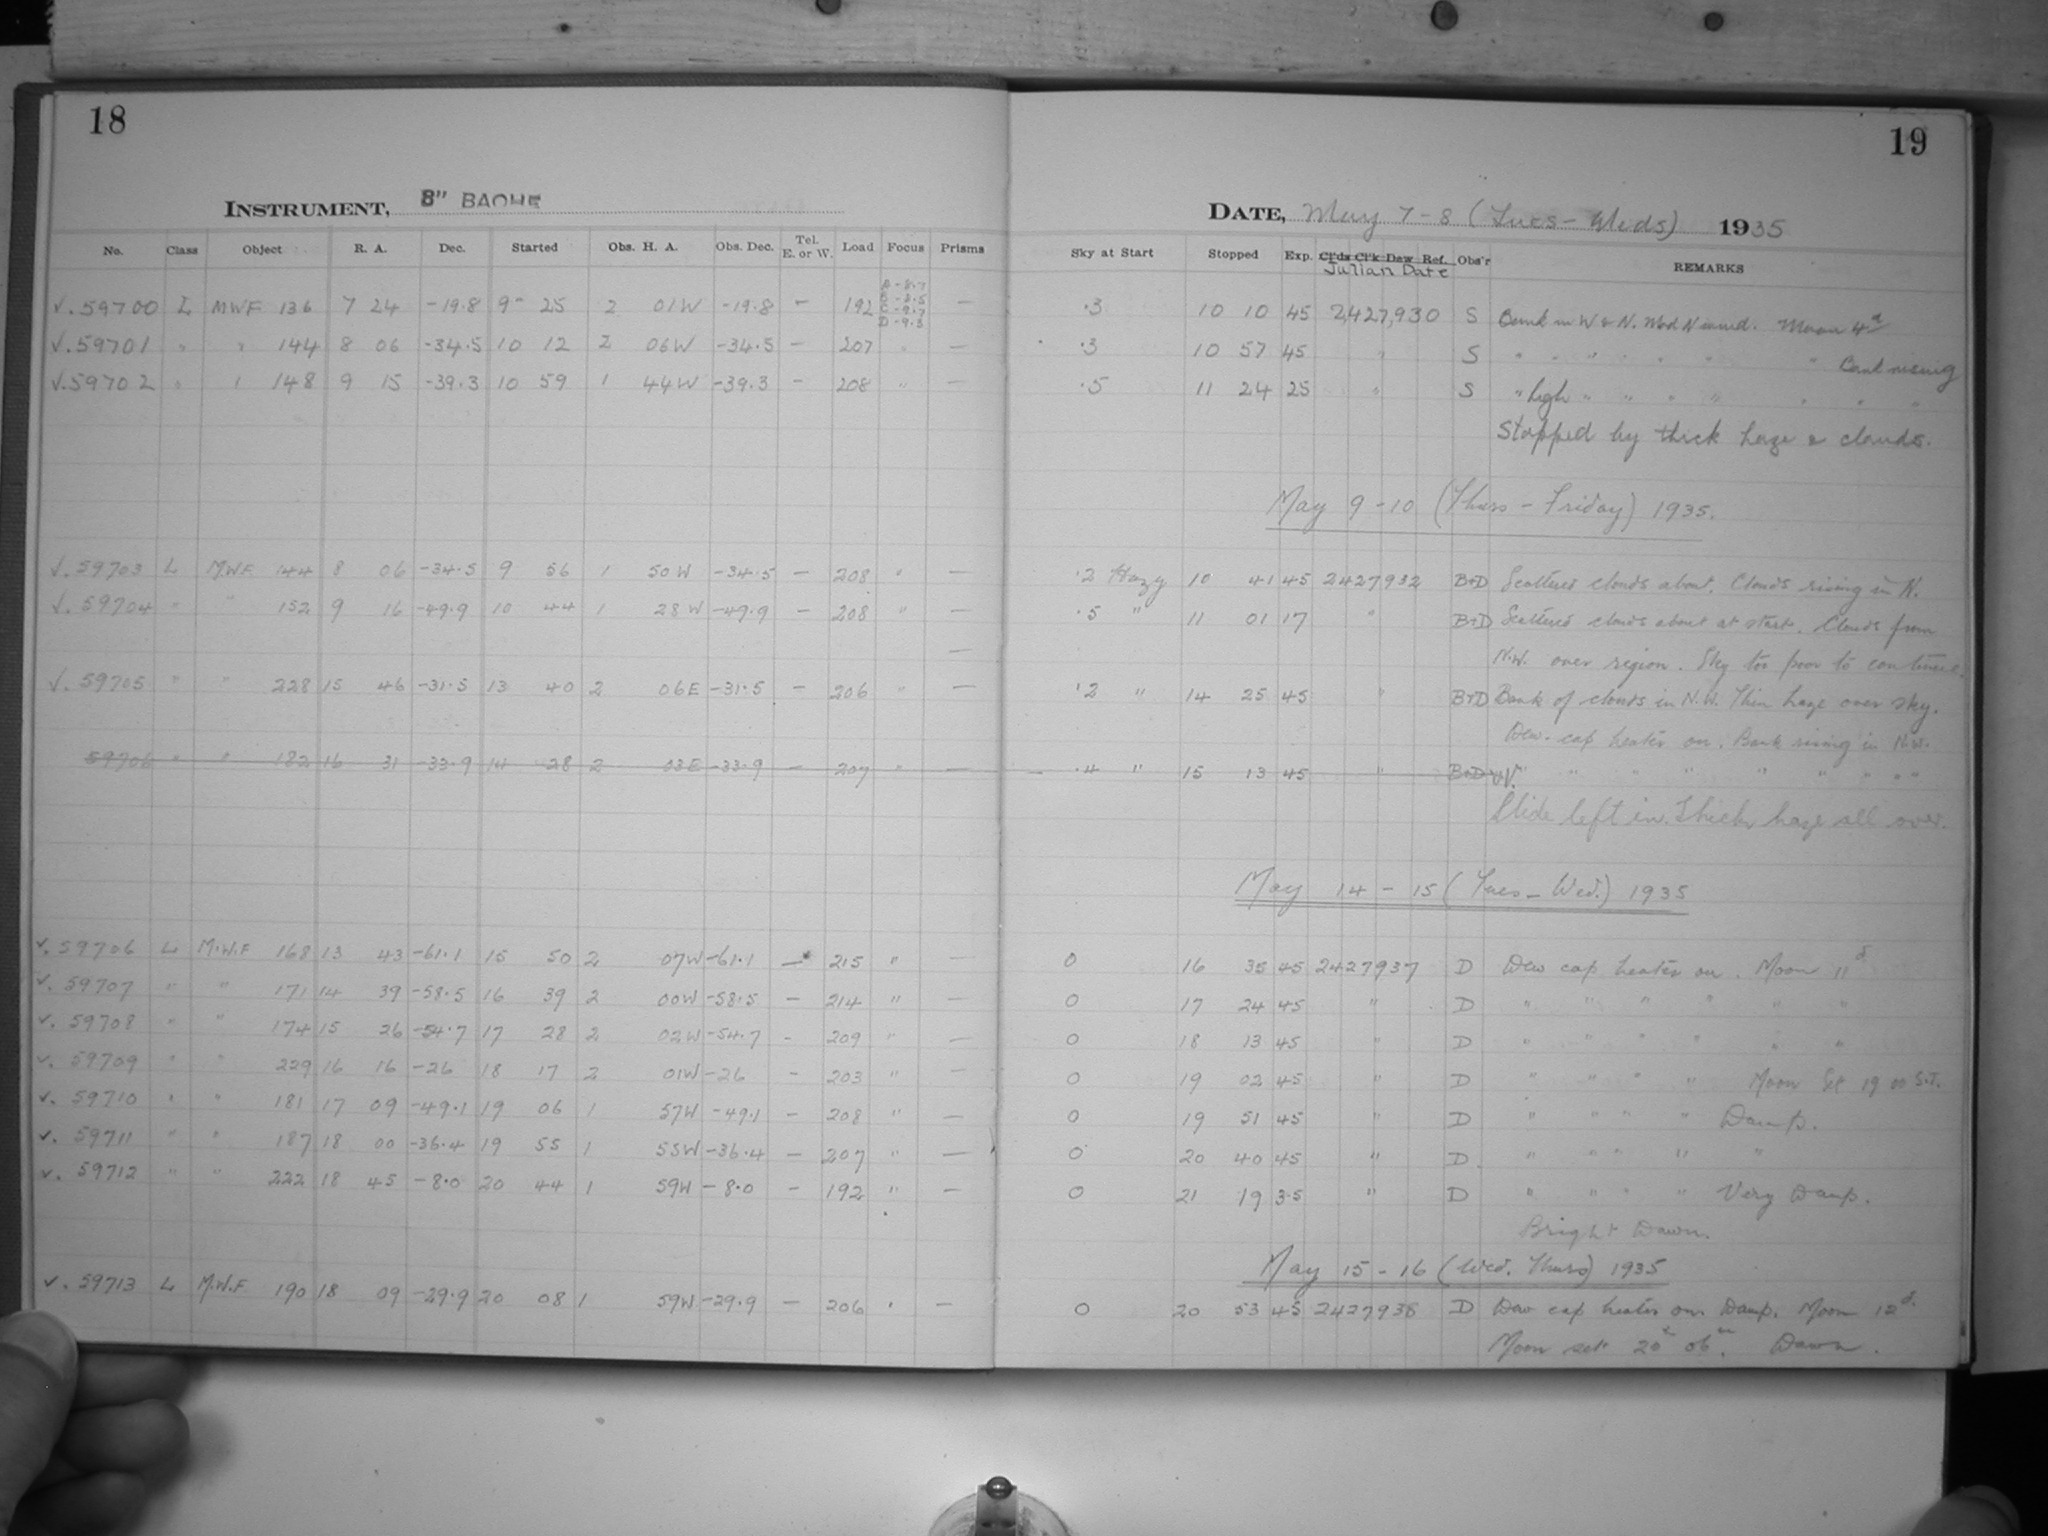 18
INSTRUMENT, 8" BACHE
No. Class Object R. A. Dec. Started Obs. H. A. Obs. Dec. Tel. E. or W. Load Focus Prisms
√. 59700 L MWF 136 7 24 -19.8 9 25 2 01W -19.8 - 192 A-8.7 B-8.5 C-9.7 D-9.3 —
√. 59701 " " 144 8 06 -34.5 10 12 2 06W -34.5 - 207 " —
√. 59702 " " 148 9 15 -39.3 10 59 1 44W -39.3 - 208 " —
√. 59703 L M.W.F. 144 8 06 -34.5 9 56 1 50W -34.5 - 208 " —
√. 59704 " " 152 9 16 -49.9 10 44 1 28W -49.9 - 208 " —
—
√. 59705 " " 228 15 46 -31.5 13 40 2 06E -31.5 - 206 " —
59706 " " 182 16 31 -33.9 14 28 2 03E -33.9 - 207 " —
√. 59706 L M.W.F 168 13 43 -61.1 15 50 2 07W -61.1 - 215 " —
√. 59707 " " 171 14 39 -58.5 16 39 2 00W -58.5 - 214 " —
√. 59708 " " 174 15 26 -54.7 17 28 2 02W -54.7 - 209 " —
√. 59709 " " 229 16 16 -26 18 17 2 01W -26 - 203 " —
√. 59710 " " 181 17 09 -49.1 19 06 1 57W -49.1 - 208 " —
√. 59711 " " 187 18 00 -36.4 19 55 1 55W -36.4 - 207 " —
√. 59712 " " 222 18 45 -8.0 20 44 1 59W -8.0 - 192 " —
√. 59713 L M.W.F 190 18 09 -29.9 20 08 1 59W -29.9 - 206 " —
19
DATE, May 7-8 (Tues-Weds) 1935
Sky at Start Stopped Exp. Clds Clk Dew Ref. Obs'r REMARKS
Julian Date
.3 10 10 45 2,427,930 S Bank in W & N. Mod N wind. Moon 4d
.3 10 57 45 " S " " " " " " " Bank rising
.5 11 24 25 " S " high " " " " " " "
Stopped by thick haze & clouds.
May 9-10 (Thurs-Friday) 1935.
.2 Hazy 10 41 45 2427932 B+D Scattered clouds about. Clouds rising in N.
.5 " 11 01 17 " B+D Scattered clouds about at start. Clouds from
N.W. over region. Sky too poor to continue.
.2 " 14 25 45 " B+D Bank of clouds in N.W. Thin haze over sky.
Dew-cap heater on. Bank rising in N.W.
.4 " 15 13 45 " B+D " " " " " " " "
Slide left in. Thick haze all over.
May 14-15 (Tues-Wed.) 1935
0 16 35 45 2427937 D Dew cap heater on. Moon 11d
0 17 24 45 " D " " " " " "
0 18 13 45 " D " " " " " "
0 19 02 45 " D " " " " Moon Set 19 00 S.T.
0 19 51 45 " D " " " " Damp.
0 20 40 45 " D " " " " "
0 21 19 35 " D " " " " Very Damp.
Bright Dawn.
May 15-16 (Wed. Thurs) 1935
0 20 53 45 2427938 D Dew cap heater on. Damp. Moon 12d.
Moon set 20h 06m. Dawn.